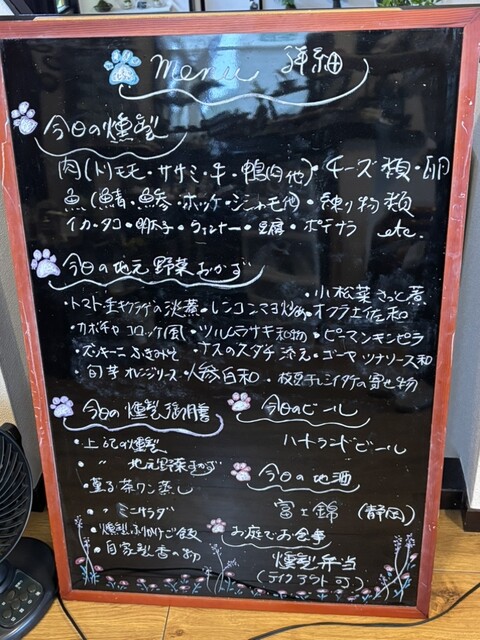 menu 詳細
今日の燻製
肉(トリモモ・ササミ・牛・鴨肉他)・チーズ類・卵
魚(鯖・鯵・ホッケ・シシャモ他)・練り物類
イカ・タコ・明太子・ウィンナー・豆腐・ポテサラ etc.
今日の地元野菜おかず
・小松菜さっと煮
・レンコンマヨ炒め・オクラ土佐和
・カボチャコロッケ風・ツルムラサキ和物・ピーマンキンピラ
・ズッキーニふきみそ ・ナスのスダチ添え・ゴーヤツナソース和
・里芋オレンジソース・人参白和 ・枝豆
今日の燻製御膳
・上記の燻製
・〃 地元野菜おかず
・薫る茶ワン蒸し
・〃 ミニサラダ
・燻製ふりかけご飯
・自家製香の物
今日のビール
ハートランドビール
今日の地酒
富士錦 (静岡)
お庭でお食事
燻製弁当
(テイクアウト可)